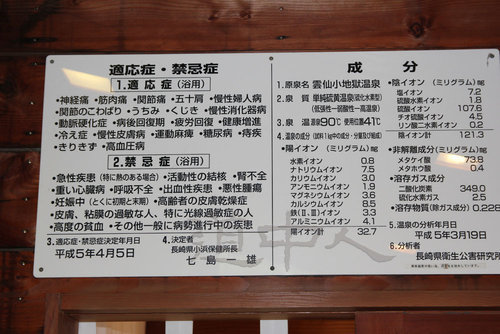 適応症・禁忌症
1.適応症（浴用）
・神経痛 ・筋肉痛 ・関節痛 ・五十肩 ・慢性婦人病
・関節のこわばり ・うちみ ・くじき ・慢性消化器病
・動脈硬化症 ・病後回復期 ・疲労回復 ・健康増進
・冷え症 ・慢性皮膚病 ・運動麻痺 ・糖尿病 ・痔疾
・きりきず ・高血圧病
2.禁忌症（浴用）
・急性疾患（特に熱のある場合）・活動性の結核 ・腎不全
・重い心臓病 ・呼吸不全 ・出血性疾患 ・悪性腫瘍
・妊娠中（とくに初期と末期）・高齢者の皮膚乾燥症
・皮膚、粘膜の過敏な人、特に光線過敏症の人
・高度の貧血 ・その他一般に病勢進行中の疾患
3.適応症・禁忌症決定年月日
平成5年4月5日
4.決定者
長崎県小浜保健所長
七島一雄
成分
1.源泉名 雲仙小地獄温泉
2.泉質 単純硫黄温泉(硫化水素型)
(低張性ー弱酸性ー高温泉)
3.泉温 源泉90℃ 使用位置41℃
・陽イオン （ミリグラム）mg
水素イオン 0.8
ナトリウムイオン 7.5
カリウムイオン 3.0
アンモニウムイオン 1.9
マグネシウムイオン 3.6
カルシウムイオン 8.5
鉄(II、3)イオン 3.3
アルミニウムイオン 4.1
陽イオン計 32.7
・陰イオン（ミリグラム）mg
塩イオン 7.2
硫酸水素イオン 1.8
硫酸イオン 107.6
チオ硫酸イオン 4.5
リン酸二水素イオン 0.2
陰イオン計 121.3
・非解離成分（ミリグラム）mg
メタケイ酸 73.8
メタホウ酸 0.4
・溶存ガス成分
二酸化炭素 349.0
硫化水素ガス 2.5
5.温泉の分析年月日
平成5年3月19日
6.分析者
長崎県衛生公害研究所